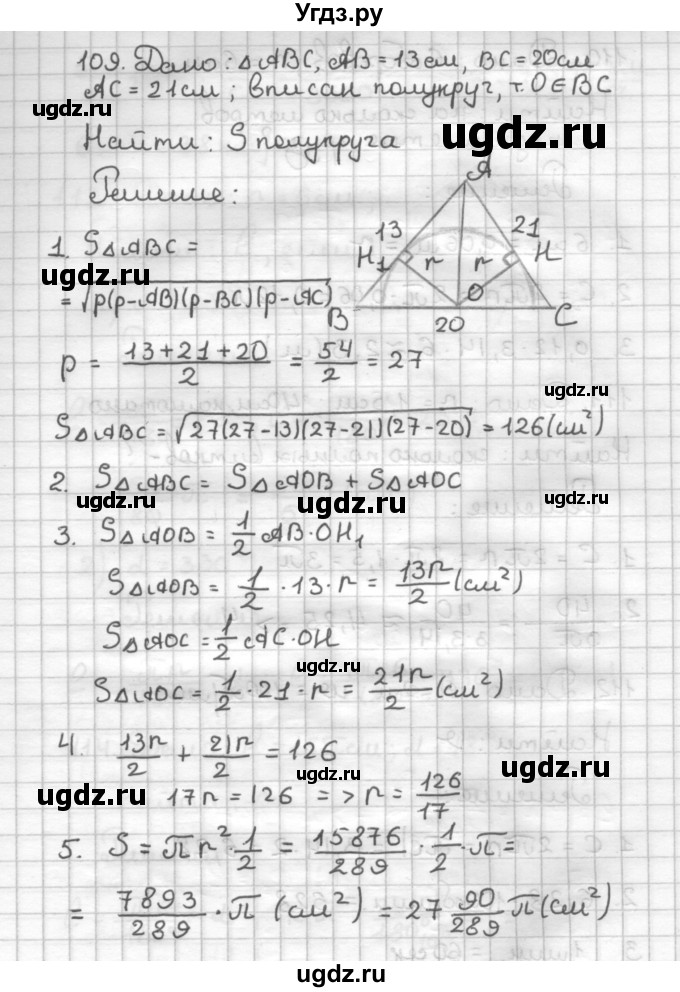 Угдз.ру
109. Дано: △ABC, AB = 13 см, BC = 20 см
AC = 21 см; вписан полукруг, т. O ∈ BC
ugdz.ru
ugdz.ru
Найти: S полукруга
Решение:
A
13
21
1. S△ABC =
H₁
r
r
H
ugdz.ru
= √p(p-AB)(p-BC)(p-AC)
O
B
20
C
p = (13+21+20)/2 = 54/2 = 27
ugdz.ru
S△ABC = √27(27-13)(27-21)(27-20) = 126 (см²)
2. S△ABC = S△AOB + S△AOC
ugdz.ru
ugdz.ru
3. S△AOB = 1/2 AB·OH₁
S△AOB = 1/2 · 13 · r = 13r/2 (см²)
S△AOC = 1/2 AC·OH
ugdz.ru
S△AOC = 1/2 · 21 · r = 21r/2 (см²)
4. 13r/2 + 21r/2 = 126
ugdz.ru
ugdz.ru
17r = 126 => r = 126/17
5. S = πr² · 1/2 = 15876/289 · 1/2 · π =
ugdz.ru
ugdz.ru
= 7893/289 · π (см²) = 27 90/289 π (см²)
ugdz.ru